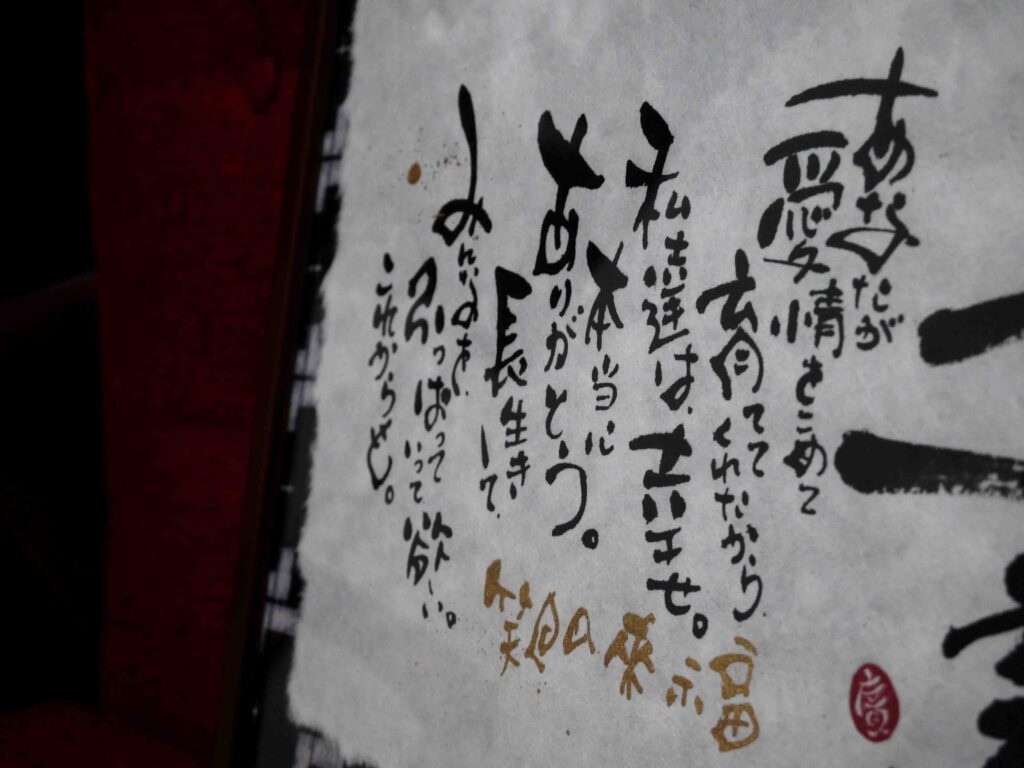 あなたが
愛情をこめて
育ててくれたから
私達は、
本当に
ありがとう。
長生きして、
みんなを、
引っぱっていって欲しい。
これからも。
笑門来福